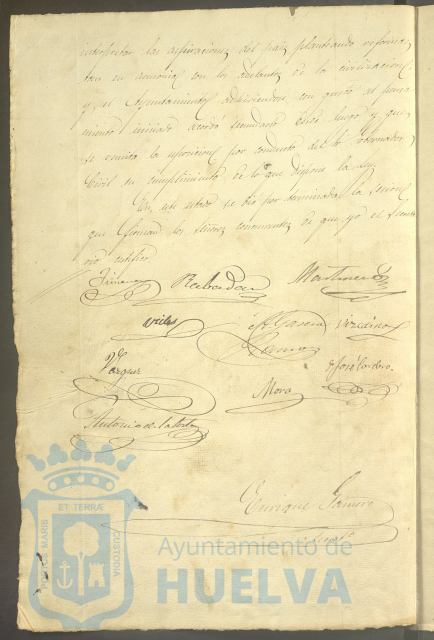 interpretar las aspiraciones del pais planteando reformas
en armonia con los adelantos de la civilizacion
y el Ayuntamiento adhiriendose con gusto al pensa
miento iniciado acordó secundarlo en su lugar y que
se remita la esposicion por conducto del Sr Gobernador
Civil en cumplimiento de lo que dispone la ley.
En este estado se dió por terminada la sesion
que firman los Señores concurrentes de que yo el Secreta
rio certifico
Rabadan Martinez
Garcia Vizcaino
Vazquez
José Cordero
Mora
Antonio de la Corte
Enrique
ET TERRÆ
MARIS
CUSTODIA
Ayuntamiento de
HUELVA